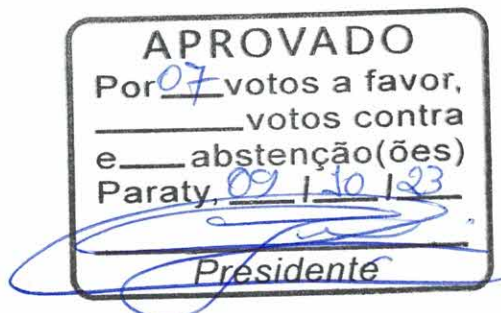 APROVADO
Por 07 votos a favor,
______ votos contra
e___abstenção(ões)
Paraty, 09 / 10 / 23
Presidente